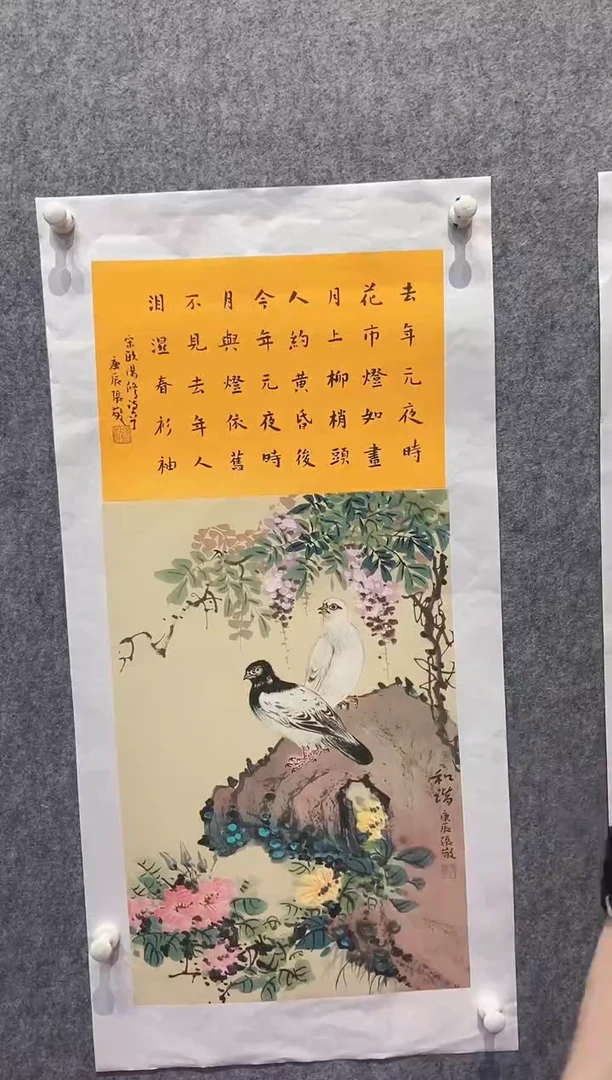 去年元夜時
花市燈如晝
月上柳梢頭
人約黃昏後
今年元夜時
月與燈依舊
不見去年人
泪濕春衫袖
宋歐陽修
庚辰張敏
和諧
庚辰張敏